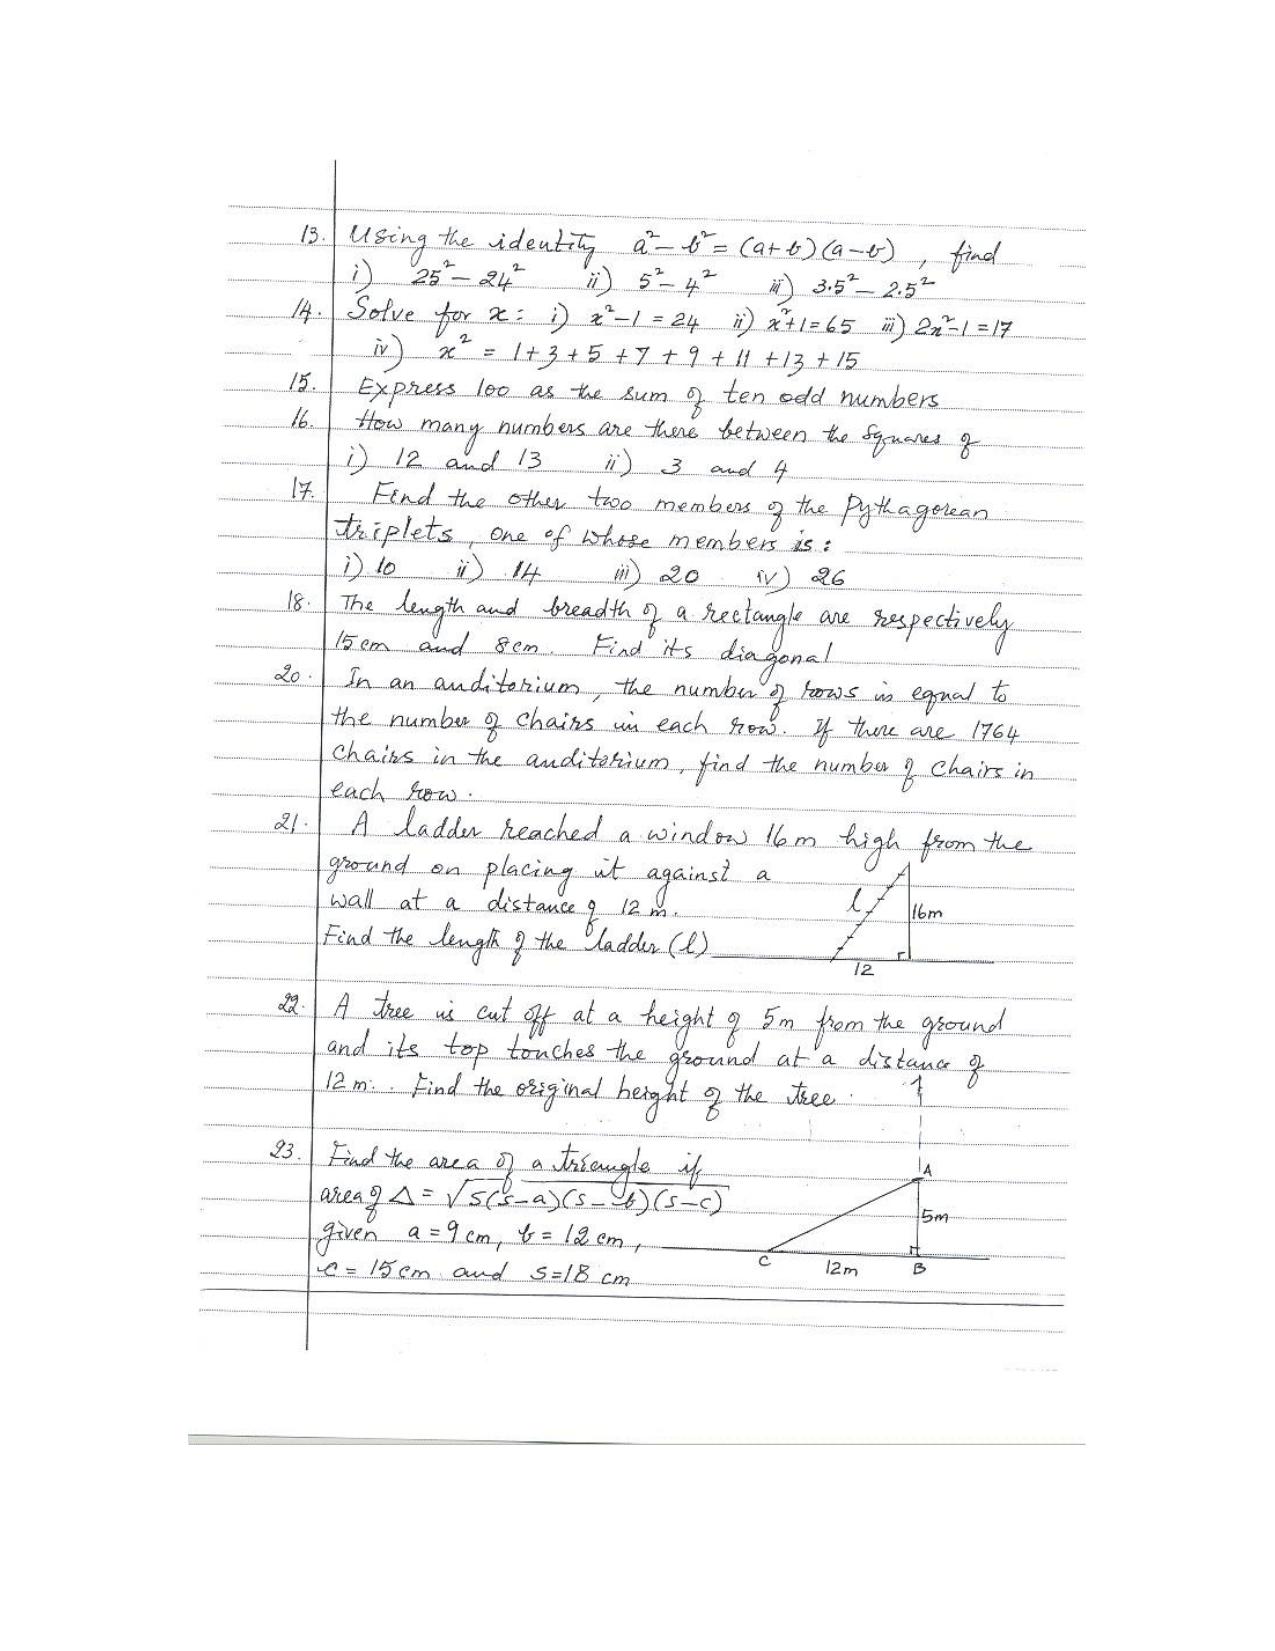 13. Using the identity a² - b² = (a+b)(a-b), find
i) 25² - 24² ii) 5² - 4² iii) 3.5² - 2.5²
14. Solve for x: i) x² - 1 = 24 ii) x² + 1 = 65 iii) 2x² - 1 = 17
iv) x² = 1 + 3 + 5 + 7 + 9 + 11 + 13 + 15
15. Express 100 as the sum of ten odd numbers
16. How many numbers are there between the squares of
i) 12 and 13 ii) 3 and 4
17. Find the other two members of the Pythagorean
triplets, one of whose members is:
i) 10 ii) 14 iii) 20 iv) 26
18. The length and breadth of a rectangle are respectively
15cm and 8cm. Find its diagonal
20. In an auditorium, the number of rows is equal to
the number of chairs in each row. If there are 1764
chairs in the auditorium, find the number of chairs in
each row.
21. A ladder reached a window 16m high from the
ground on placing it against a
wall at a distance of 12 m.
Find the length of the ladder (l)
l
16m
12
22. A tree is cut off at a height of 5m from the ground
and its top touches the ground at a distance of
12 m. Find the original height of the tree.
23. Find the area of a triangle if
area of Δ = √s(s-a)(s-b)(s-c)
given a = 9 cm, b = 12 cm,
c = 15 cm and s = 18 cm
A
5m
C 12m B